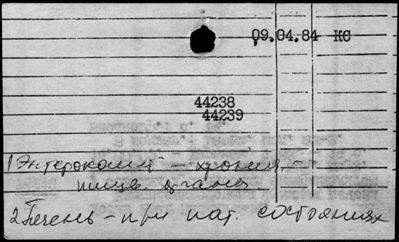 09.04.84 КС
44238
44239
1 Энтероколит – хронич. –
пищев.
2 Печень – при пат. состояниях